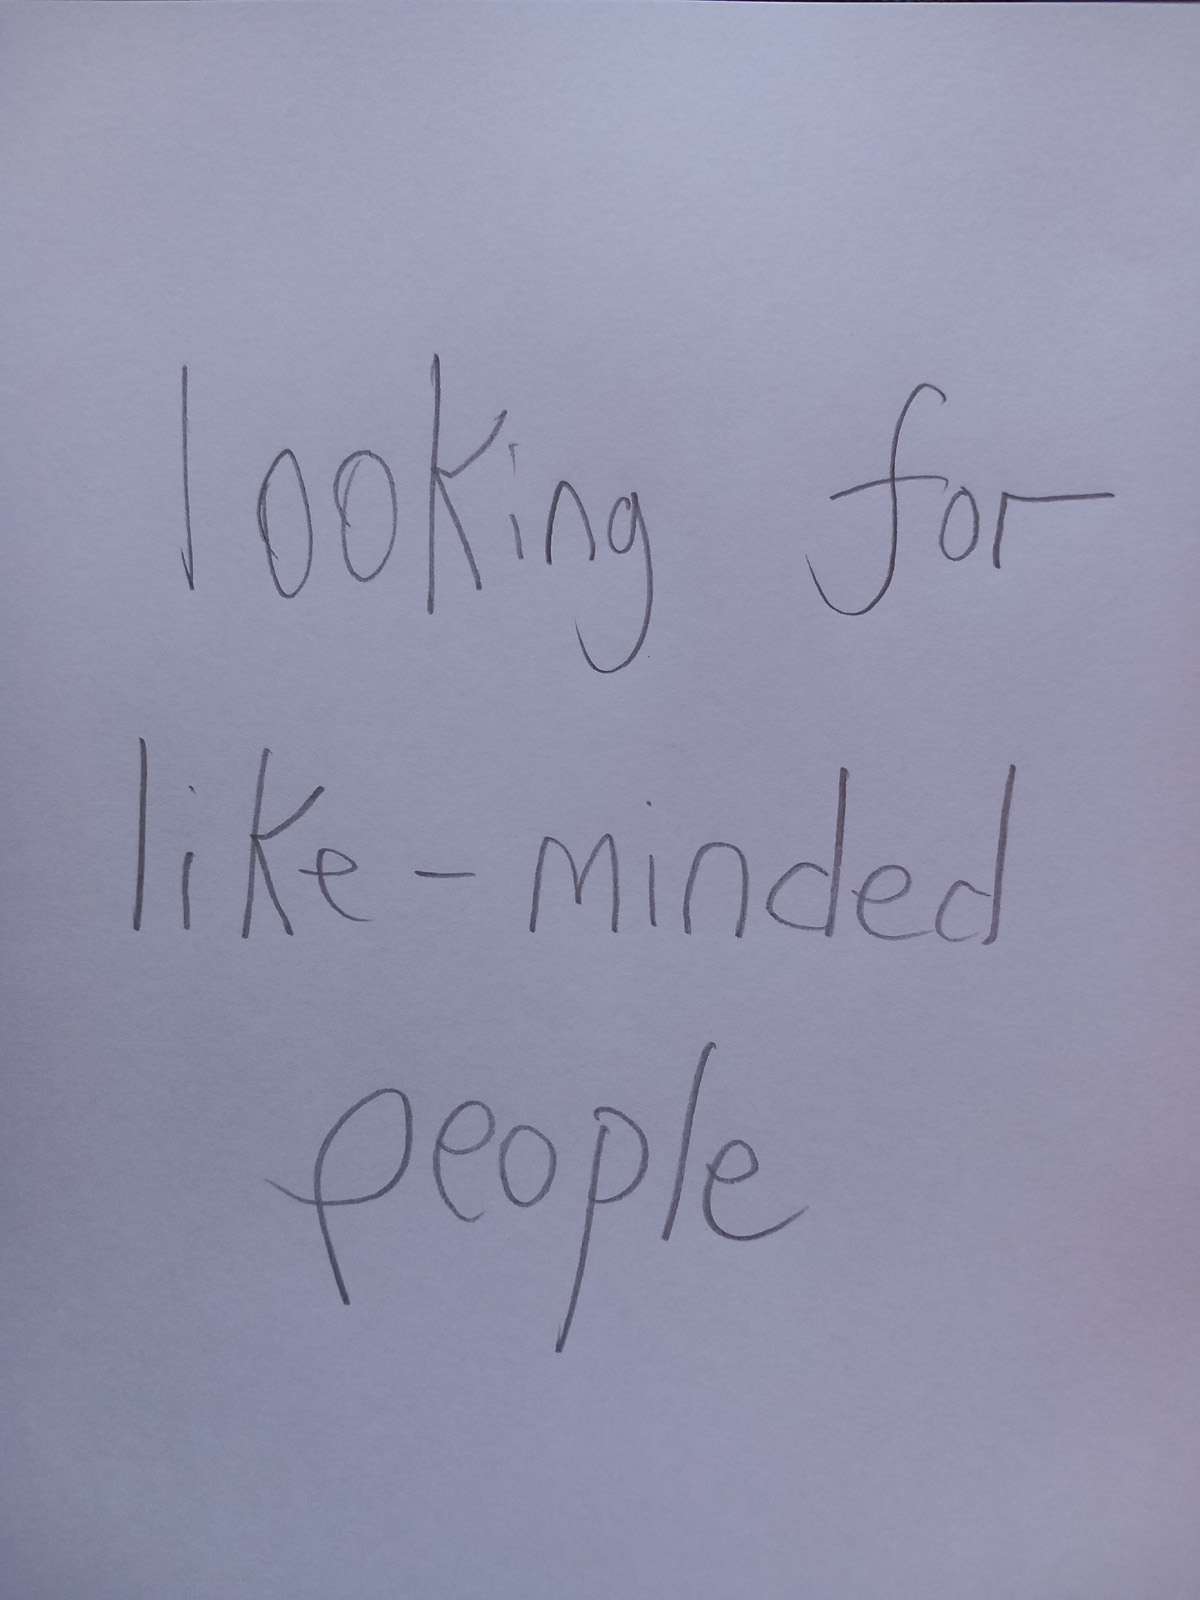 looking for
like-minded
people